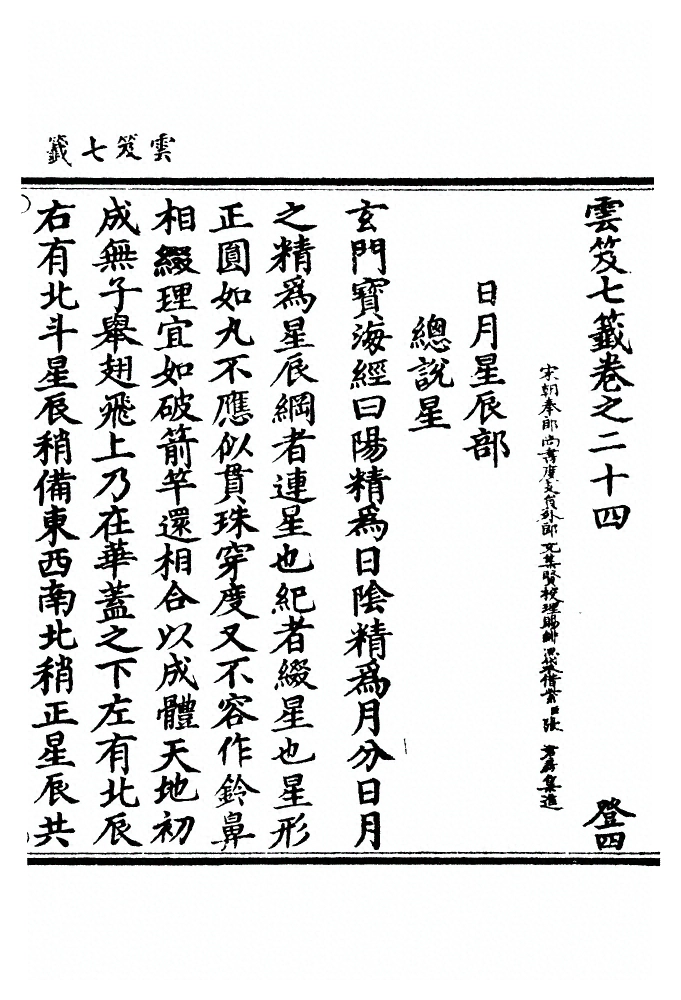 雲笈七籤
雲笈七籤卷之二十四
登四
宋朝奉郎尚書度支員外郎充集賢校理賜緋魚袋借紫臣張君房集進
日月星辰部
總說星
玄門寶海經曰陽精爲日陰精爲月分日月
之精爲星辰綱者連星也紀者綴星也星形
正圓如丸不應似貫珠穿度又不容作鈴鼻
相綴理宜如破箭竿還相合以成體天地初
成無子舉翅飛上乃在華蓋之下左有北辰
右有北斗星辰稍備東西南北稍正星辰共